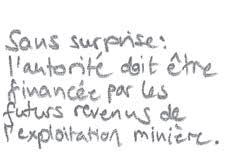 Sans surprise:
l'autorité doit être
financée par les
futurs revenus de
l'exploitation minière.